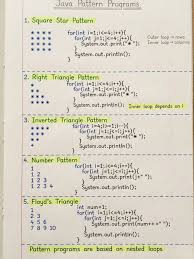 Java Pattern Programs
1. Square Star Pattern
* * * *
* * * *
* * * *
* * * *
for(int i=1;i<=4;i++){
for(int j=1;j<=4;j++){
System.out.print("* ");
}
System.out.println();
}
Outer loop → rows
Inner loop → columns
2. Right Triangle Pattern
*
* *
* * *
* * * *
for(int i=1;i<=4;i++){
for(int j=1;j<=i;j++){
System.out.print("* ");
}
System.out.println();
}
Inner loop depends on i
3. Inverted Triangle Pattern
* * * *
* * *
* *
*
for(int i=4;i>=1;i--){
for(int j=1;j<=i;j++){
System.out.print("* ");
}
System.out.println();
}
4. Number Pattern
1
1 2
1 2 3
1 2 3 4
for(int i=1;i<=4;i++){
for(int j=1;j<=i;j++){
System.out.print(
}
System.out.println();
}
5. Floyd's Triangle
1
2 3
4 5 6
7 8 9 10
int num=1;
for(int i=1;i<=4;i++){
for(int j=1;j<=i;j++){
System.out.print(
}
System.out.println();
}
Pattern programs are based on nested loops